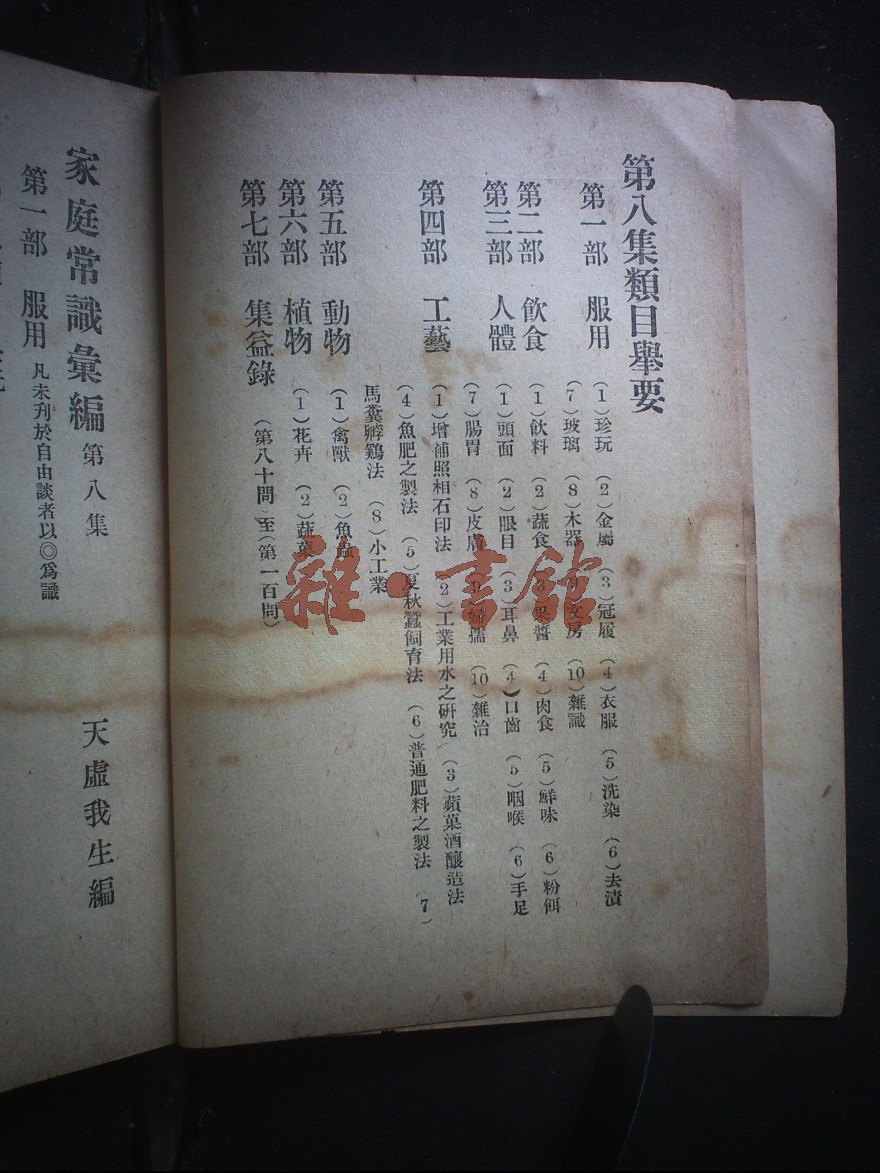 第八集類目舉要
第一部 服用 (1)珍玩 (2)金屬 (3)冠履 (4)衣服 (5)洗染 (6)去漬
(7)玻璃 (8)木器 文房 (10)雜識
第二部 飲食 (1)飲料 (2)蔬食 果醬 (4)肉食 (5)鮮味 (6)粉餌
第三部 人體 (1)頭面 (2)眼目 (3)耳鼻 (4)口齒 (5)咽喉 (6)手足
(7)腸胃 (8)皮膚 婦孺 (10)雜治
第四部 工藝 (1)增補照相石印法 (2)工業用水之研究 (3)蘋菓酒釀造法
(4)魚肥之製法 (5)夏秋蠶飼育法 (6)普通肥料之製法 (7)
馬糞孵鷄法 (8)小工業
第五部 動物 (1)禽獸 (2)魚蟲
第六部 植物 (1)花卉 (2)蔬菓
第七部 集益錄 (第八十問)至(第一百問)
家庭常識彙編 第八集 天虛我生編
第一部 服用 凡未刋於自由談者以◎爲識
雜·書館